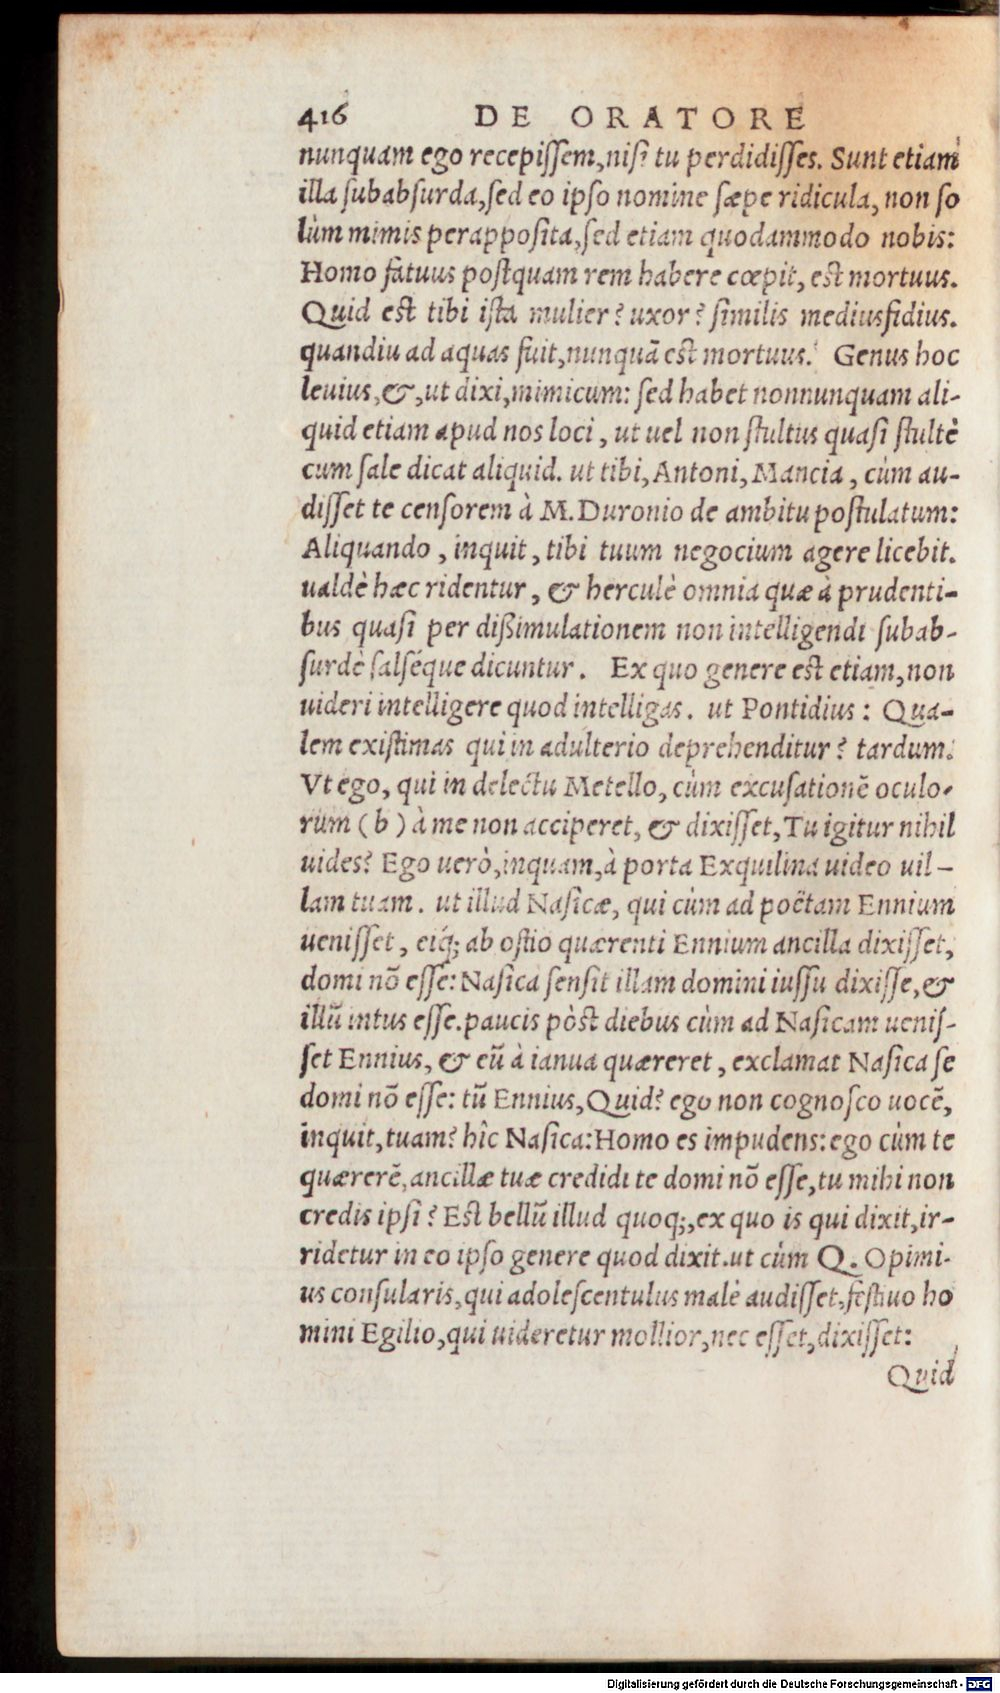 416 DE ORATORE
nunquam ego recepissem,nisi tu perdidisses. Sunt etiam
illa subabsurda,sed eo ipso nomine sæpe ridicula, non so
lùm mimis perapposita,sed etiam quodammodo nobis:
Homo fatuus postquam rem habere cœpit, est mortuus.
Quid est tibi ista mulier? uxor? similis mediusfidius.
quandiu ad aquas fuit,nunquã est mortuus. Genus hoc
leuius,&,ut dixi,mimicum: sed habet nonnunquam ali-
quid etiam apud nos loci, ut uel non stultus quasi stultè
cum sale dicat aliquid. ut tibi, Antoni, Mancia, cùm au-
disset te censorem à M. Duronio de ambitu postulatum:
Aliquando, inquit, tibi tuum negocium agere licebit.
ualdè hæc ridentur, & herculè omnia quæ à prudenti-
bus quasi per dißimulationem non intelligendi subab-
surdè salséque dicuntur. Ex quo genere est etiam,non
uideri intelligere quod intelligas. ut Pontidius: Qua-
lem existimas qui in adulterio deprehenditur? tardum.
Vt ego, qui in delectu Metello, cùm excusationẽ oculo-
rum (b) à me non acciperet, & dixisset, Tu igitur nihil
uides? Ego uerò,inquam,à porta Exquilina uideo uil-
lam tuam. ut illud Nasicæ, qui cùm ad poëtam Ennium
uenisset, eiq́; ab ostio quærenti Ennium ancilla dixisset,
domi nõ esse: Nasica sensit illam domini iussu dixisse,&
illũ intus esse.paucis pòst diebus cùm ad Nasicam uenis-
set Ennius, & eũ à ianua quæreret, exclamat Nasica se
domi nõ esse: tũ Ennius,Quid? ego non cognosco uocẽ,
inquit,tuam? hîc Nasica:Homo es impudens:ego cùm te
quærerẽ,ancillæ tuæ credidi te domi nõ esse,tu mihi non
credis ipsi? Est bellũ illud quoq;,ex quo is qui dixit,ir-
ridetur in eo ipso genere quod dixit.ut cùm Q. Opimi-
us consularis,qui adolescentulus malè audisset,festiuo ho
mini Egilio,qui uideretur mollior,nec esset,dixisset:
Quid
Digitalisierung gefördert durch die Deutsche Forschungsgemeinschaft - DFG